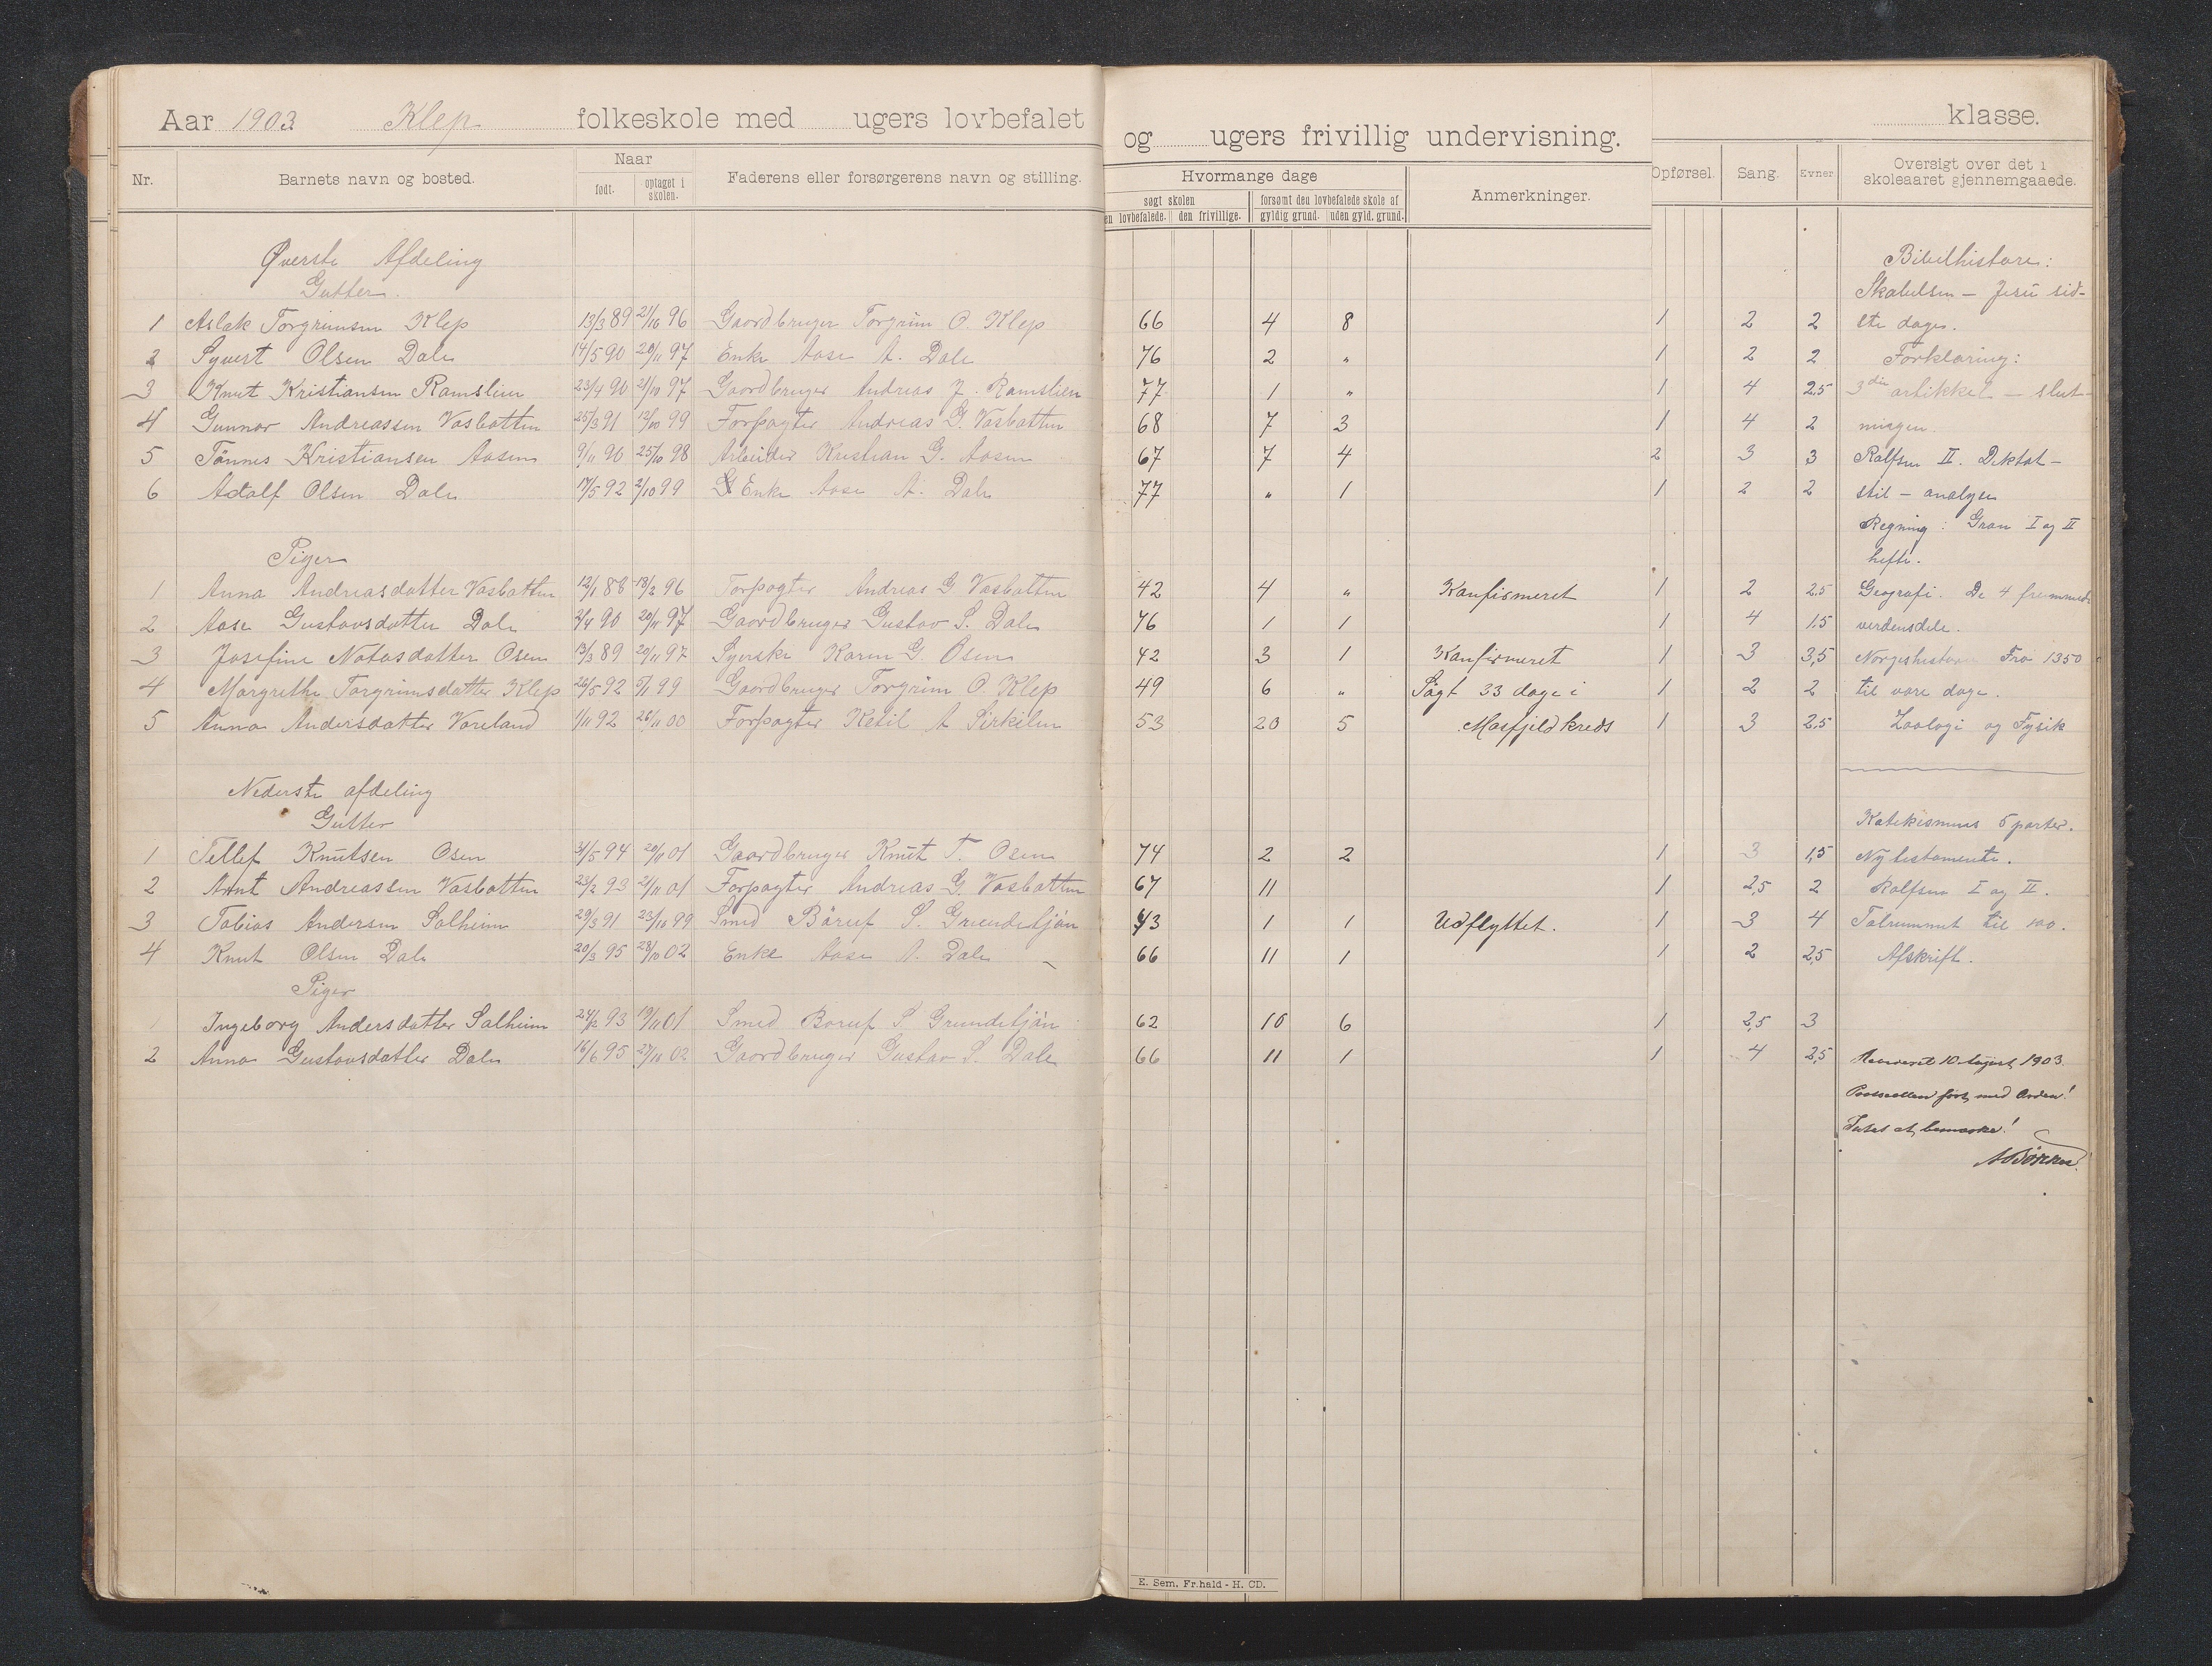 Aar 1903 Klep folkeskole med ugers lovbefalet og ugers frivillig undervisning. klasse.
Nr. Barnets navn og bosted. Naar født. optaget i skolen. Faderens eller forsørgerens navn og stilling. Hvormange dage søgt skolen den frivillige. forsømt den lovbefalede skole af gyldig grund. uden gyld. grund. Anmerkninger. Opførsel. Sang. Evner Oversigt over det i skoleaaret gjennemgaaede.
Øverste Afdeling Bibelhistore:
Gutter. Skabelsen – Jesu sid-
1 Aslak Torgrimsen Klep 13/3 89 21/10 96 Gaardbruger Torgrim O. Klep 66 4 8 1 2 2 ste dager.
2 Syvert Olsen Dale 14/5 90 20/11 97 Enke Aase A. Dale 76 2 " 1 2 2 Forklaring:
3 Knut Kristiansen Ramslien 23/4 90 21/10 97 Gaardbruger Andreas J. Ramslien 77 1 " 1 4 2,5 3die artikkel – slut-
4 Gunnar Andreassen Vasbotten 25/3 91 12/10 99 Forpagter Andreas G. Vasbotten 68 7 3 1 4 2 ningen.
5 Tønnes Kristiansen Aasen 9/11 90 25/10 98 Arbeider Kristian G. Aasen 67 7 4 2 3 3 Rolfsen II. Diktat –
6 Adolf Olsen Dale 17/5 92 2/10 99 Enke Aase A. Dale 77 " 1 1 2 2 stil – analyse
Regning: Gran I og II
Piger hefte.
1 Anna Andreasdatter Vasbotten 12/1 88 13/2 96 Forpagter Andreas G Vasbotten 42 4 " Konfirmeret 1 2 2,5 Geografi. De 4 fremmede
2 Aase Gustavsdatter Dale 2/4 90 20/11 97 Gaardbruger Gustav S. Dale 76 1 1 1 4 1,5 verdensdele.
3 Josefine Natasdatter Osen 13/3 89 20/11 97 Syerske Karen G. Osen 42 3 1 Konfirmeret 1 3 3,5 Norgeshistorie Fra 1350
4 Margrethe Torgrimsdatter Klep 26/5 92 5/1 99 Gaardbruger Torgrim O. Klep 49 6 " Søgt 33 dage i 1 2 2 til vore dage.
5 Anna Andersdatter Voreland 1/11 92 26/11 00 Forpagter Ketil A 53 20 5 Masfjeld kreds 1 3 2,5 Zoologi og Fysik
Nederste afdeling
Gutter Katekismus 5 parter.
1 Tellef Knutsen Osen 31/5 94 20/11 01 Gaardbruger Knut T. Osen 74 2 2 1 3 1,5 Nytestamente.
2 Arnt Andreassen Vasbotten 23/2 93 21/11 01 Forpagter Andreas G. Vasbotten 67 11 1 2,5 2 Rolfsen I og II.
3 Tobias Andersen Solheim 29/3 91 23/10 99 Smed Børuf S. Grundetjøn 43 1 1 Udflyttet. 1 3 4 Talrummet til 100.
4 Knut Olsen Dale 20/3 95 28/10 02 Enke Aase A. Dale 66 11 1 1 2 2,5 Afskrift.
Piger
1 Ingeborg Andersdatter Solheim 24/12 93 19/11 01 Smed Boruf S Grundetjøn 62 10 6 1 2,5 3
2 Anna Gustavsdatter Dale 16/6 95 27/10 02 Gaardbruger Gustav S. Dale 66 11 1 1 4 2,5 10 August 1903.
ført med Orden!
Intet at bemærke!
E. Sem. Fr.hald - H. CD.